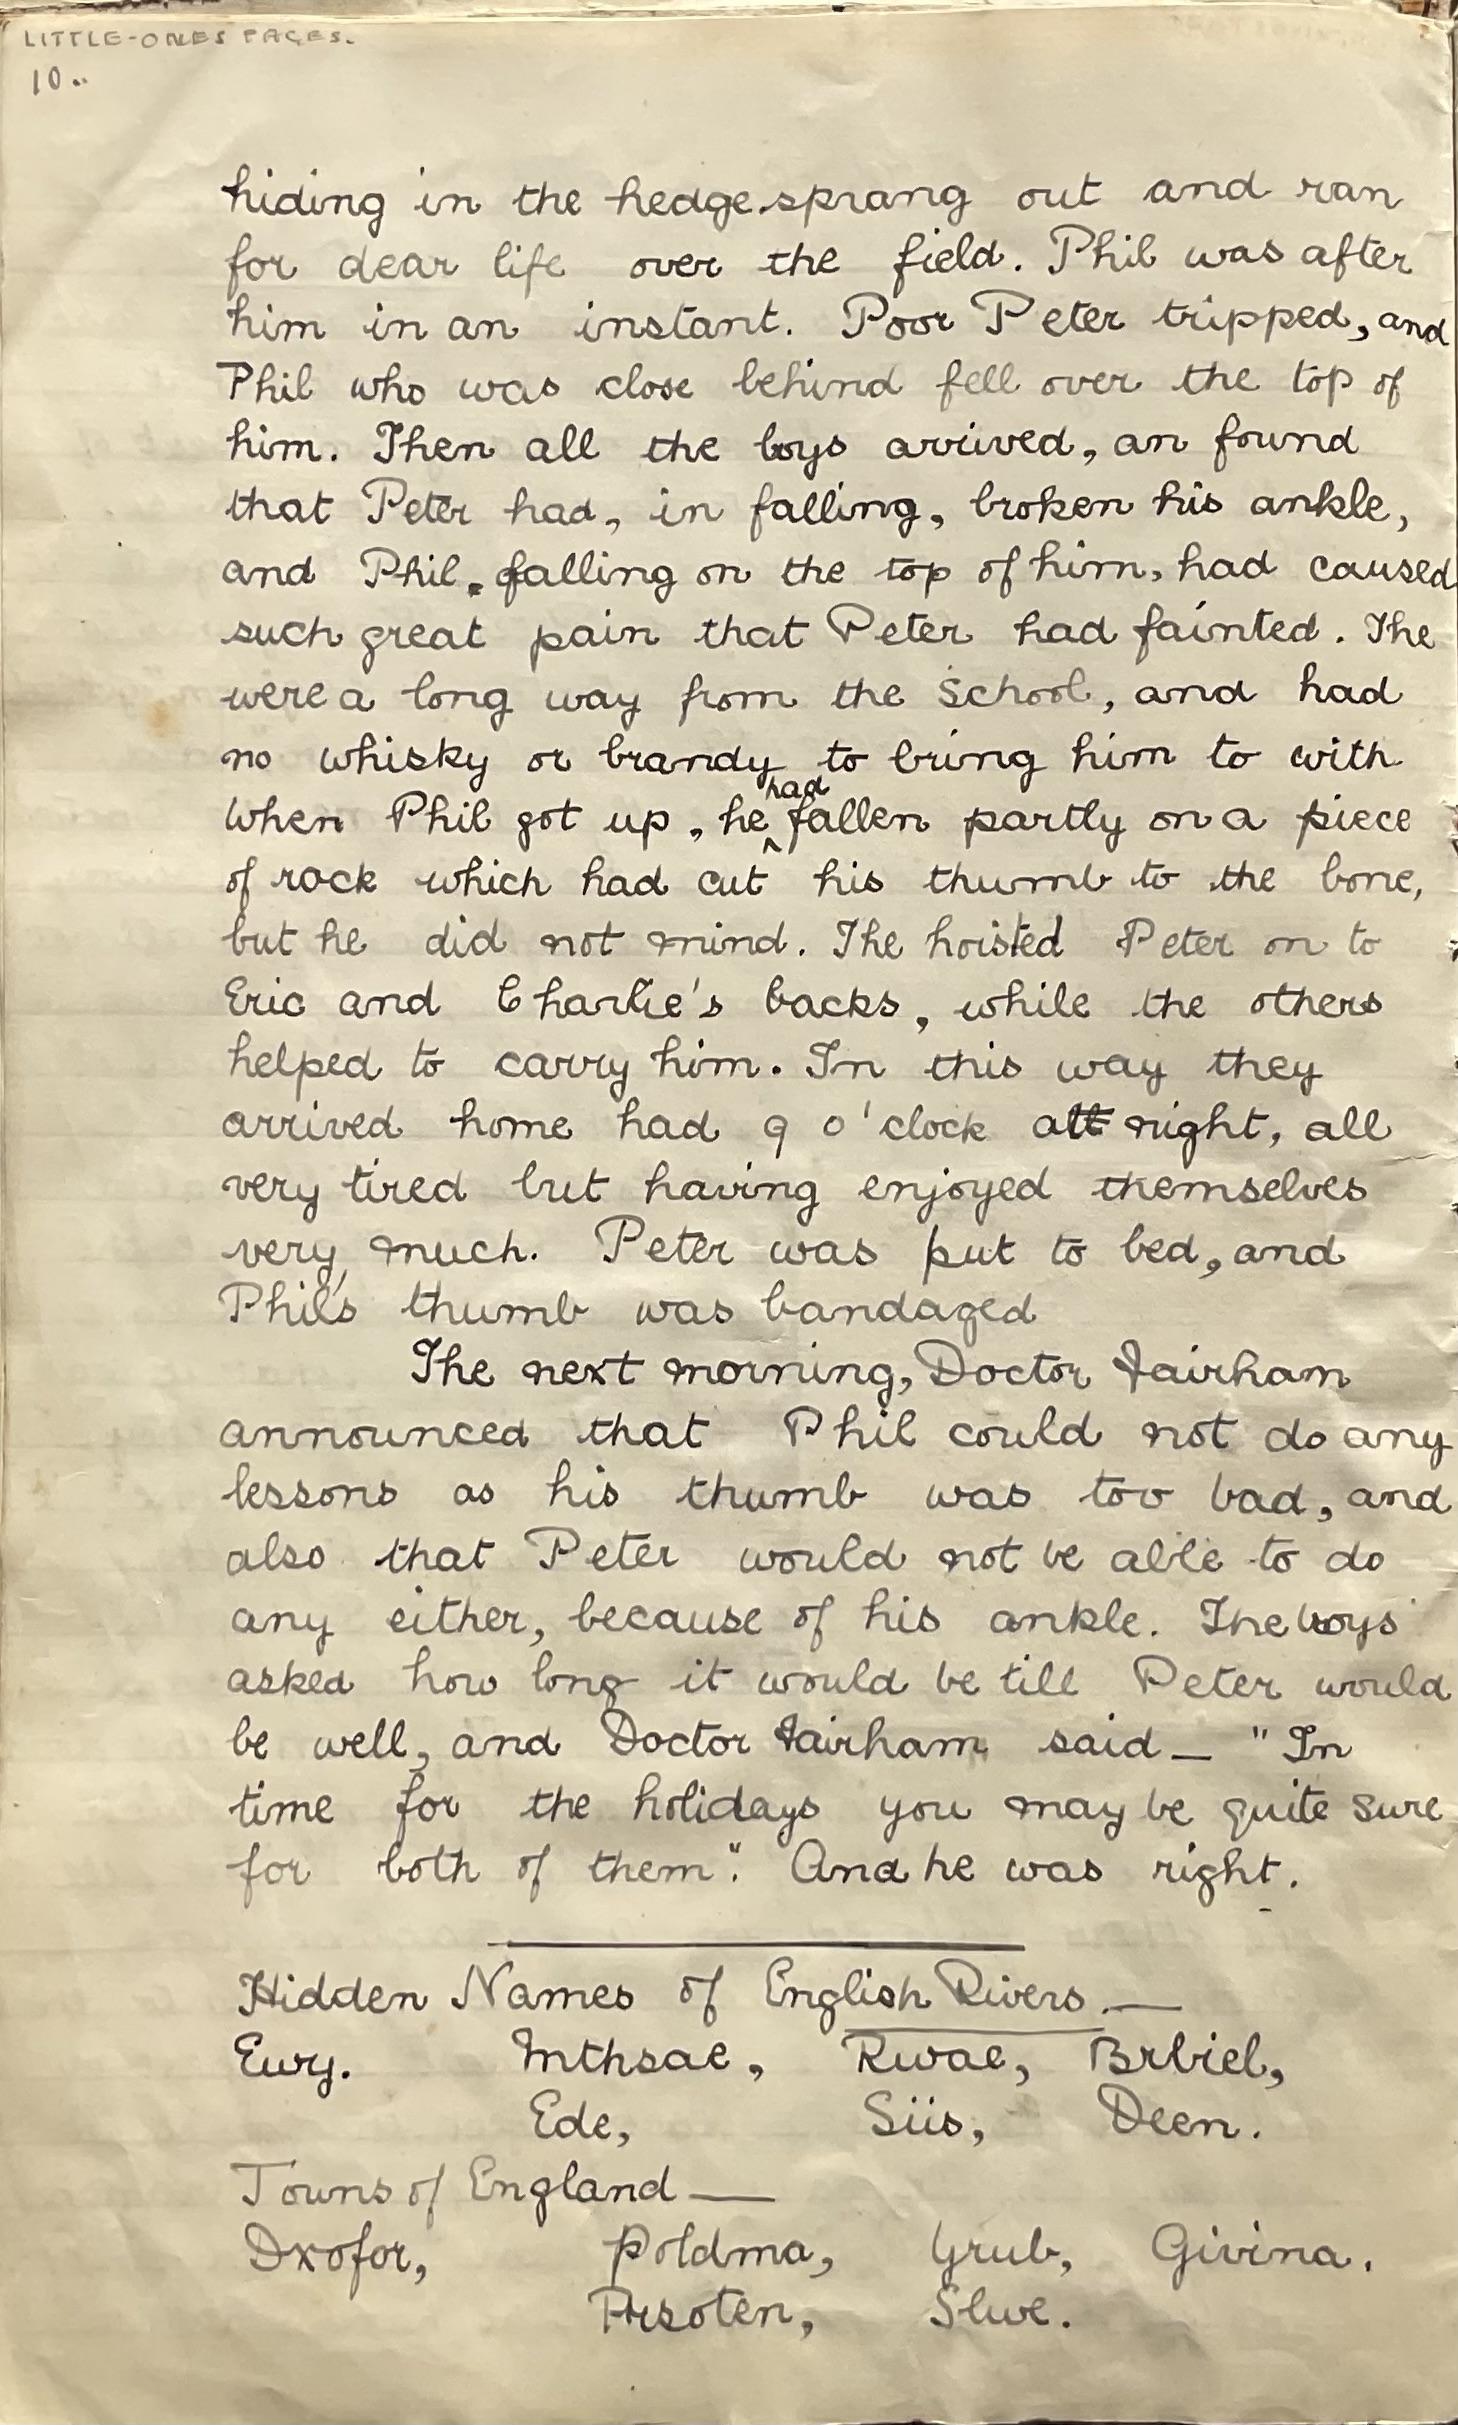 LITTLE-ONES PAGES.
10..
hiding in the hedge sprang out and ran
for dear life over the field. Phil was after
him in an instant. Poor Peter tripped, and
Phil who was close behind fell over the top of
him. Then all the boys arrived, an found
that Peter had, in falling, broken his ankle,
and Phil, falling on the top of him, had caused
such great pain that Peter had fainted. The
were a long way from the School, and had
no whisky or brandy to bring him to with
When Phil got up, he had fallen partly on a piece
of rock which had cut his thumb to the bone,
but he did not mind. The hoisted Peter on to
Eric and Charlie's backs, while the others
helped to carry him. In this way they
arrived home had 9 o'clock att night, all
very tired but having enjoyed themselves
very much. Peter was put to bed, and
Phil's thumb was bandaged
The next morning, Doctor Fairham
announced that Phil could not do any
lessons as his thumb was too bad, and
also that Peter would not be able to do
any either, because of his ankle. The boys
asked how long it would be till Peter would
be well, and Doctor Fairham said — "In
time for the holidays you may be quite sure
for both of them". And he was right.
Hidden Names of English Rivers. —
Ewy. Mthsae, Rwae, Brbiel,
Ede, Siis, Deen.
Towns of England —
Dxofor, Poldma, Yrub, Givina.
Prsoten, Slwe.